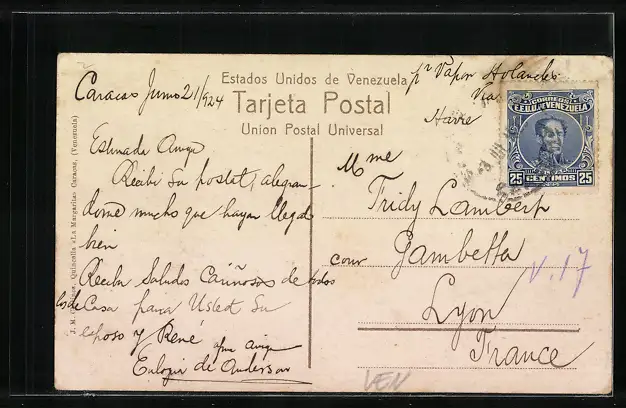 Estados Unidos de Venezuela
Tarjeta Postal
Union Postal Universal
pr Vapor Holandes
Via
Havre
Caracas Junio 21/924
Estimada Amiga
Recibi su postal, alegran-
dome mucho que hayan llegado
bien
Reciba Saludos Cariñosos de todos
los de Casa para Usted Su
esposo y René
afma amiga
Eulogia de Anderson
Mme
Fridy Lambert
cour Gambetta
Lyon
France
CORREOS
E.E.U.U. DE VENEZUELA
25 CENTIMOS 25
V.17
VEN
Quincalla «La Margarita» Caracas, (Venezuela)